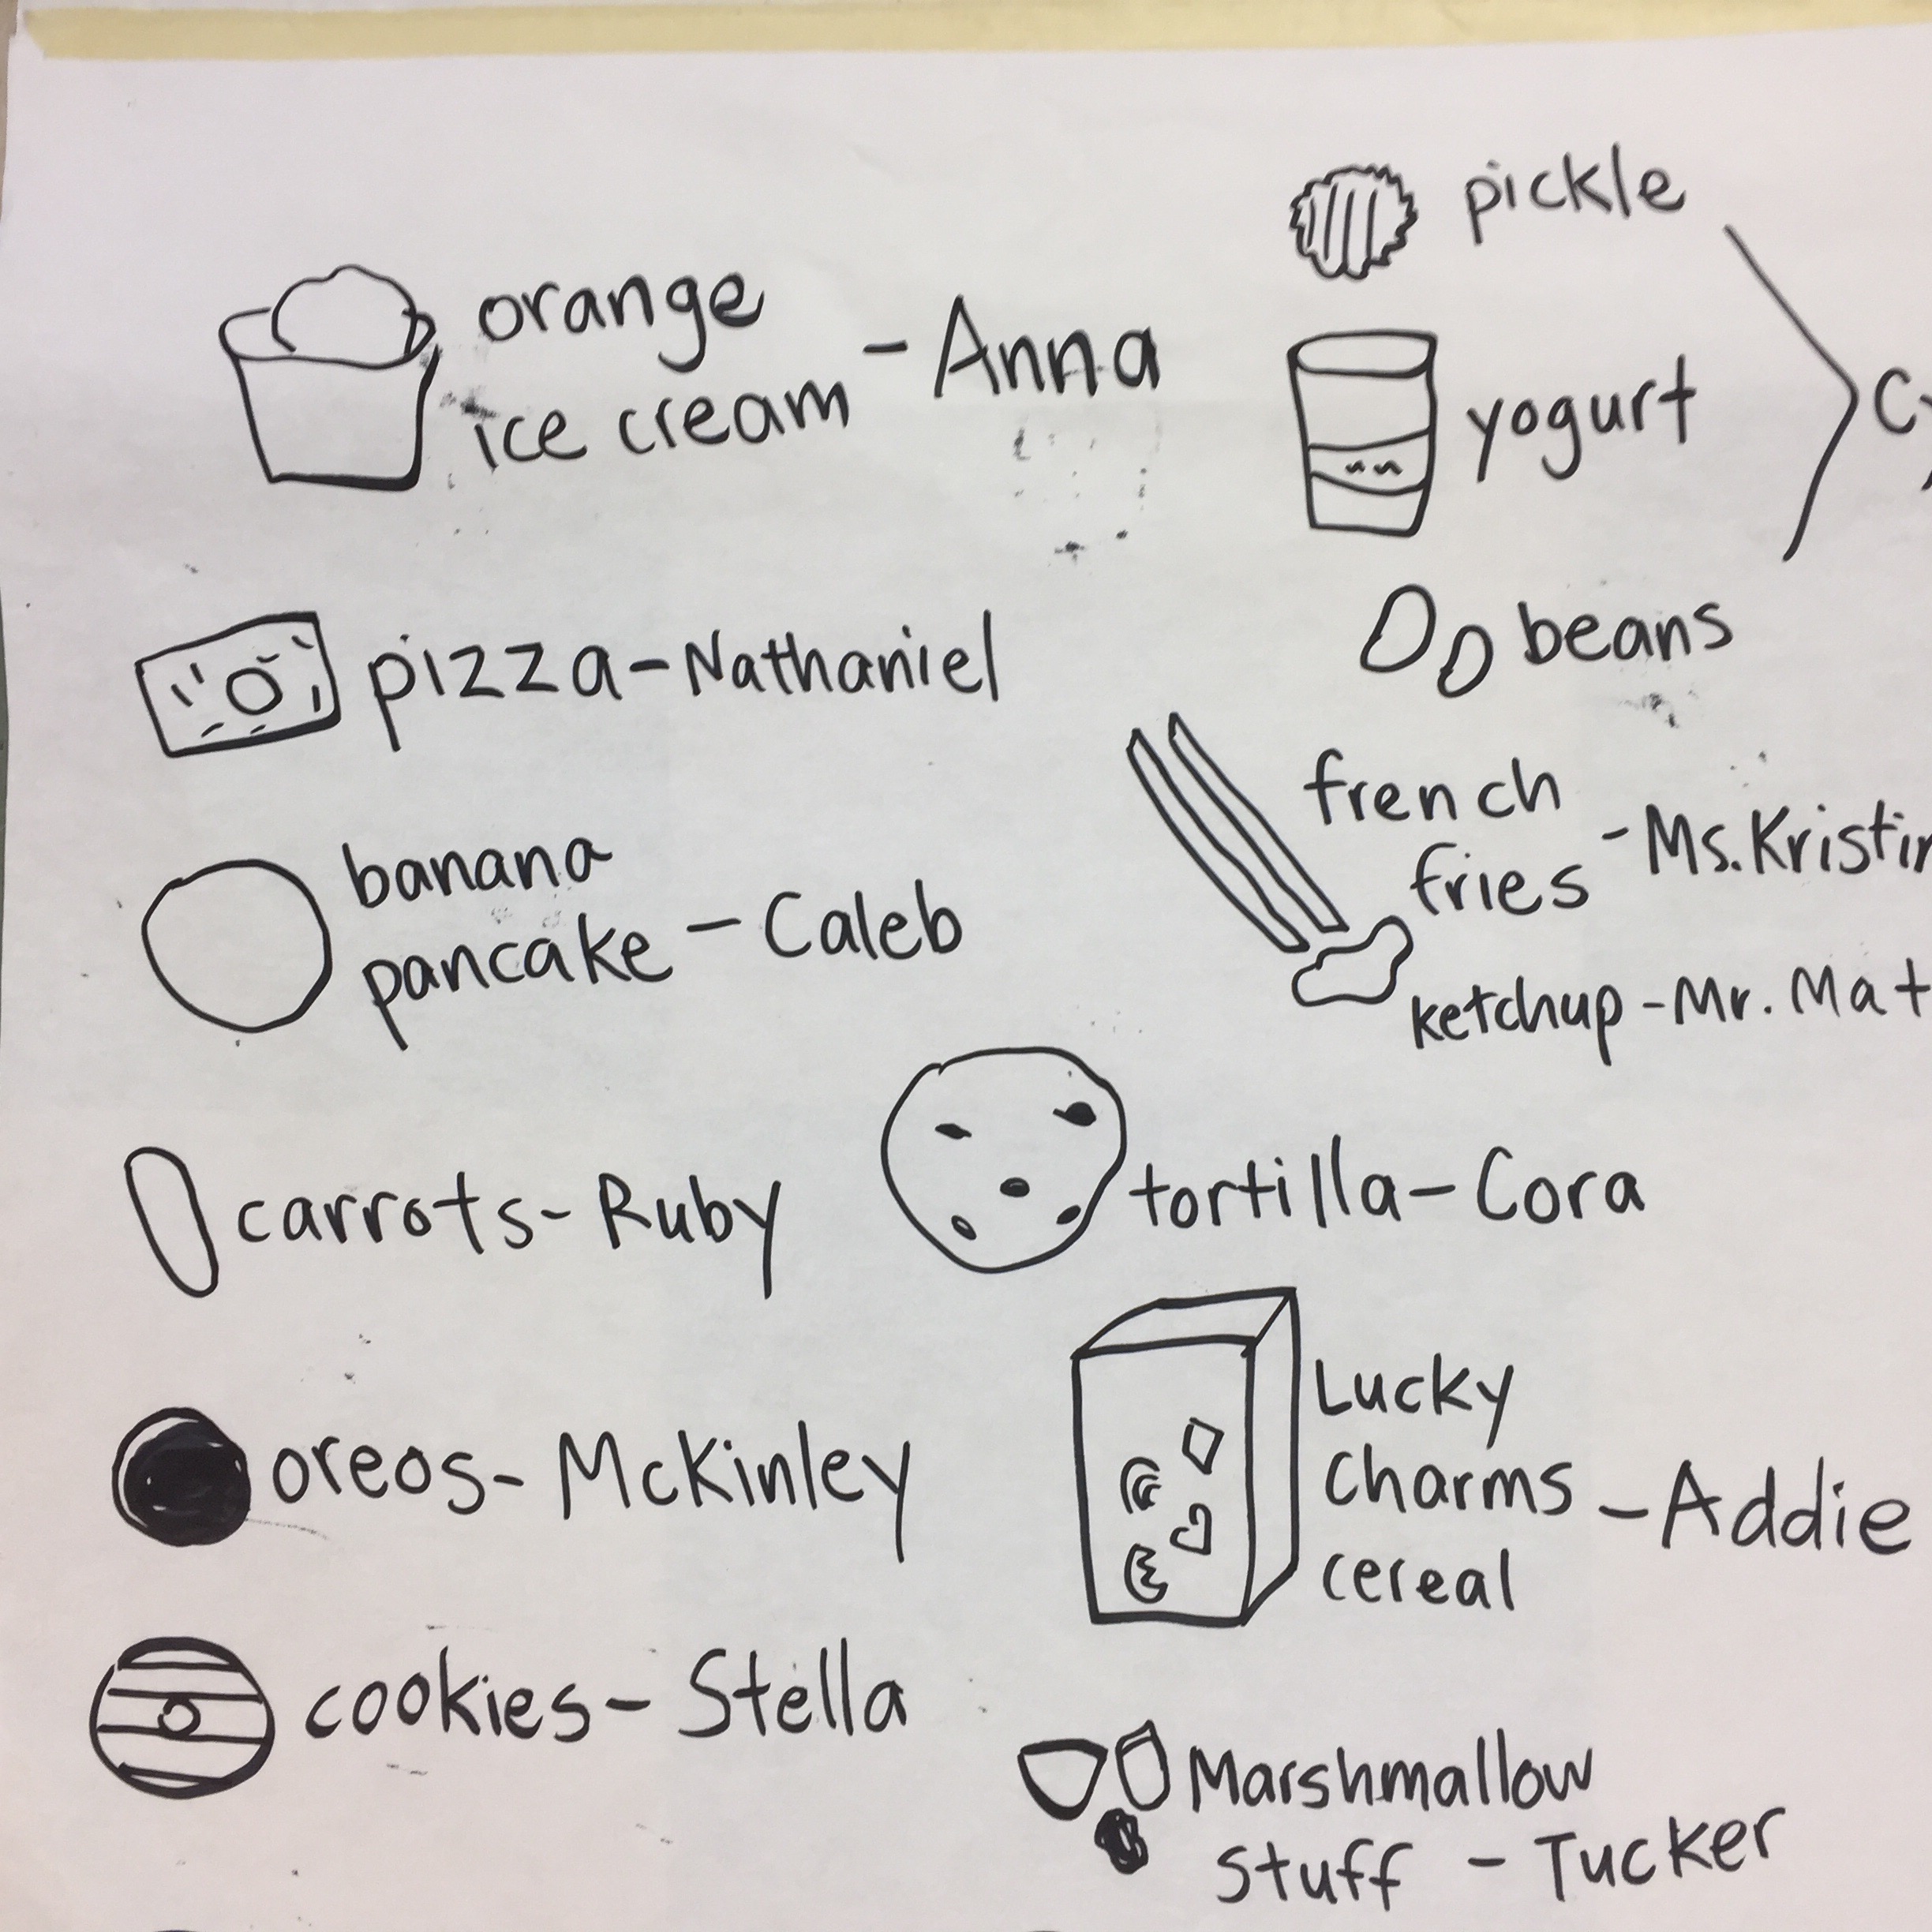 orange
ice cream - Anna
pizza - Nathaniel
banana
pancake - Caleb
carrots - Ruby
oreos - McKinley
cookies - Stella
pickle
yogurt
beans
french
fries - Ms. Kristin
ketchup - Mr. Mat
tortilla - Cora
Lucky
Charms - Addie
cereal
Marshmallow
Stuff - Tucker